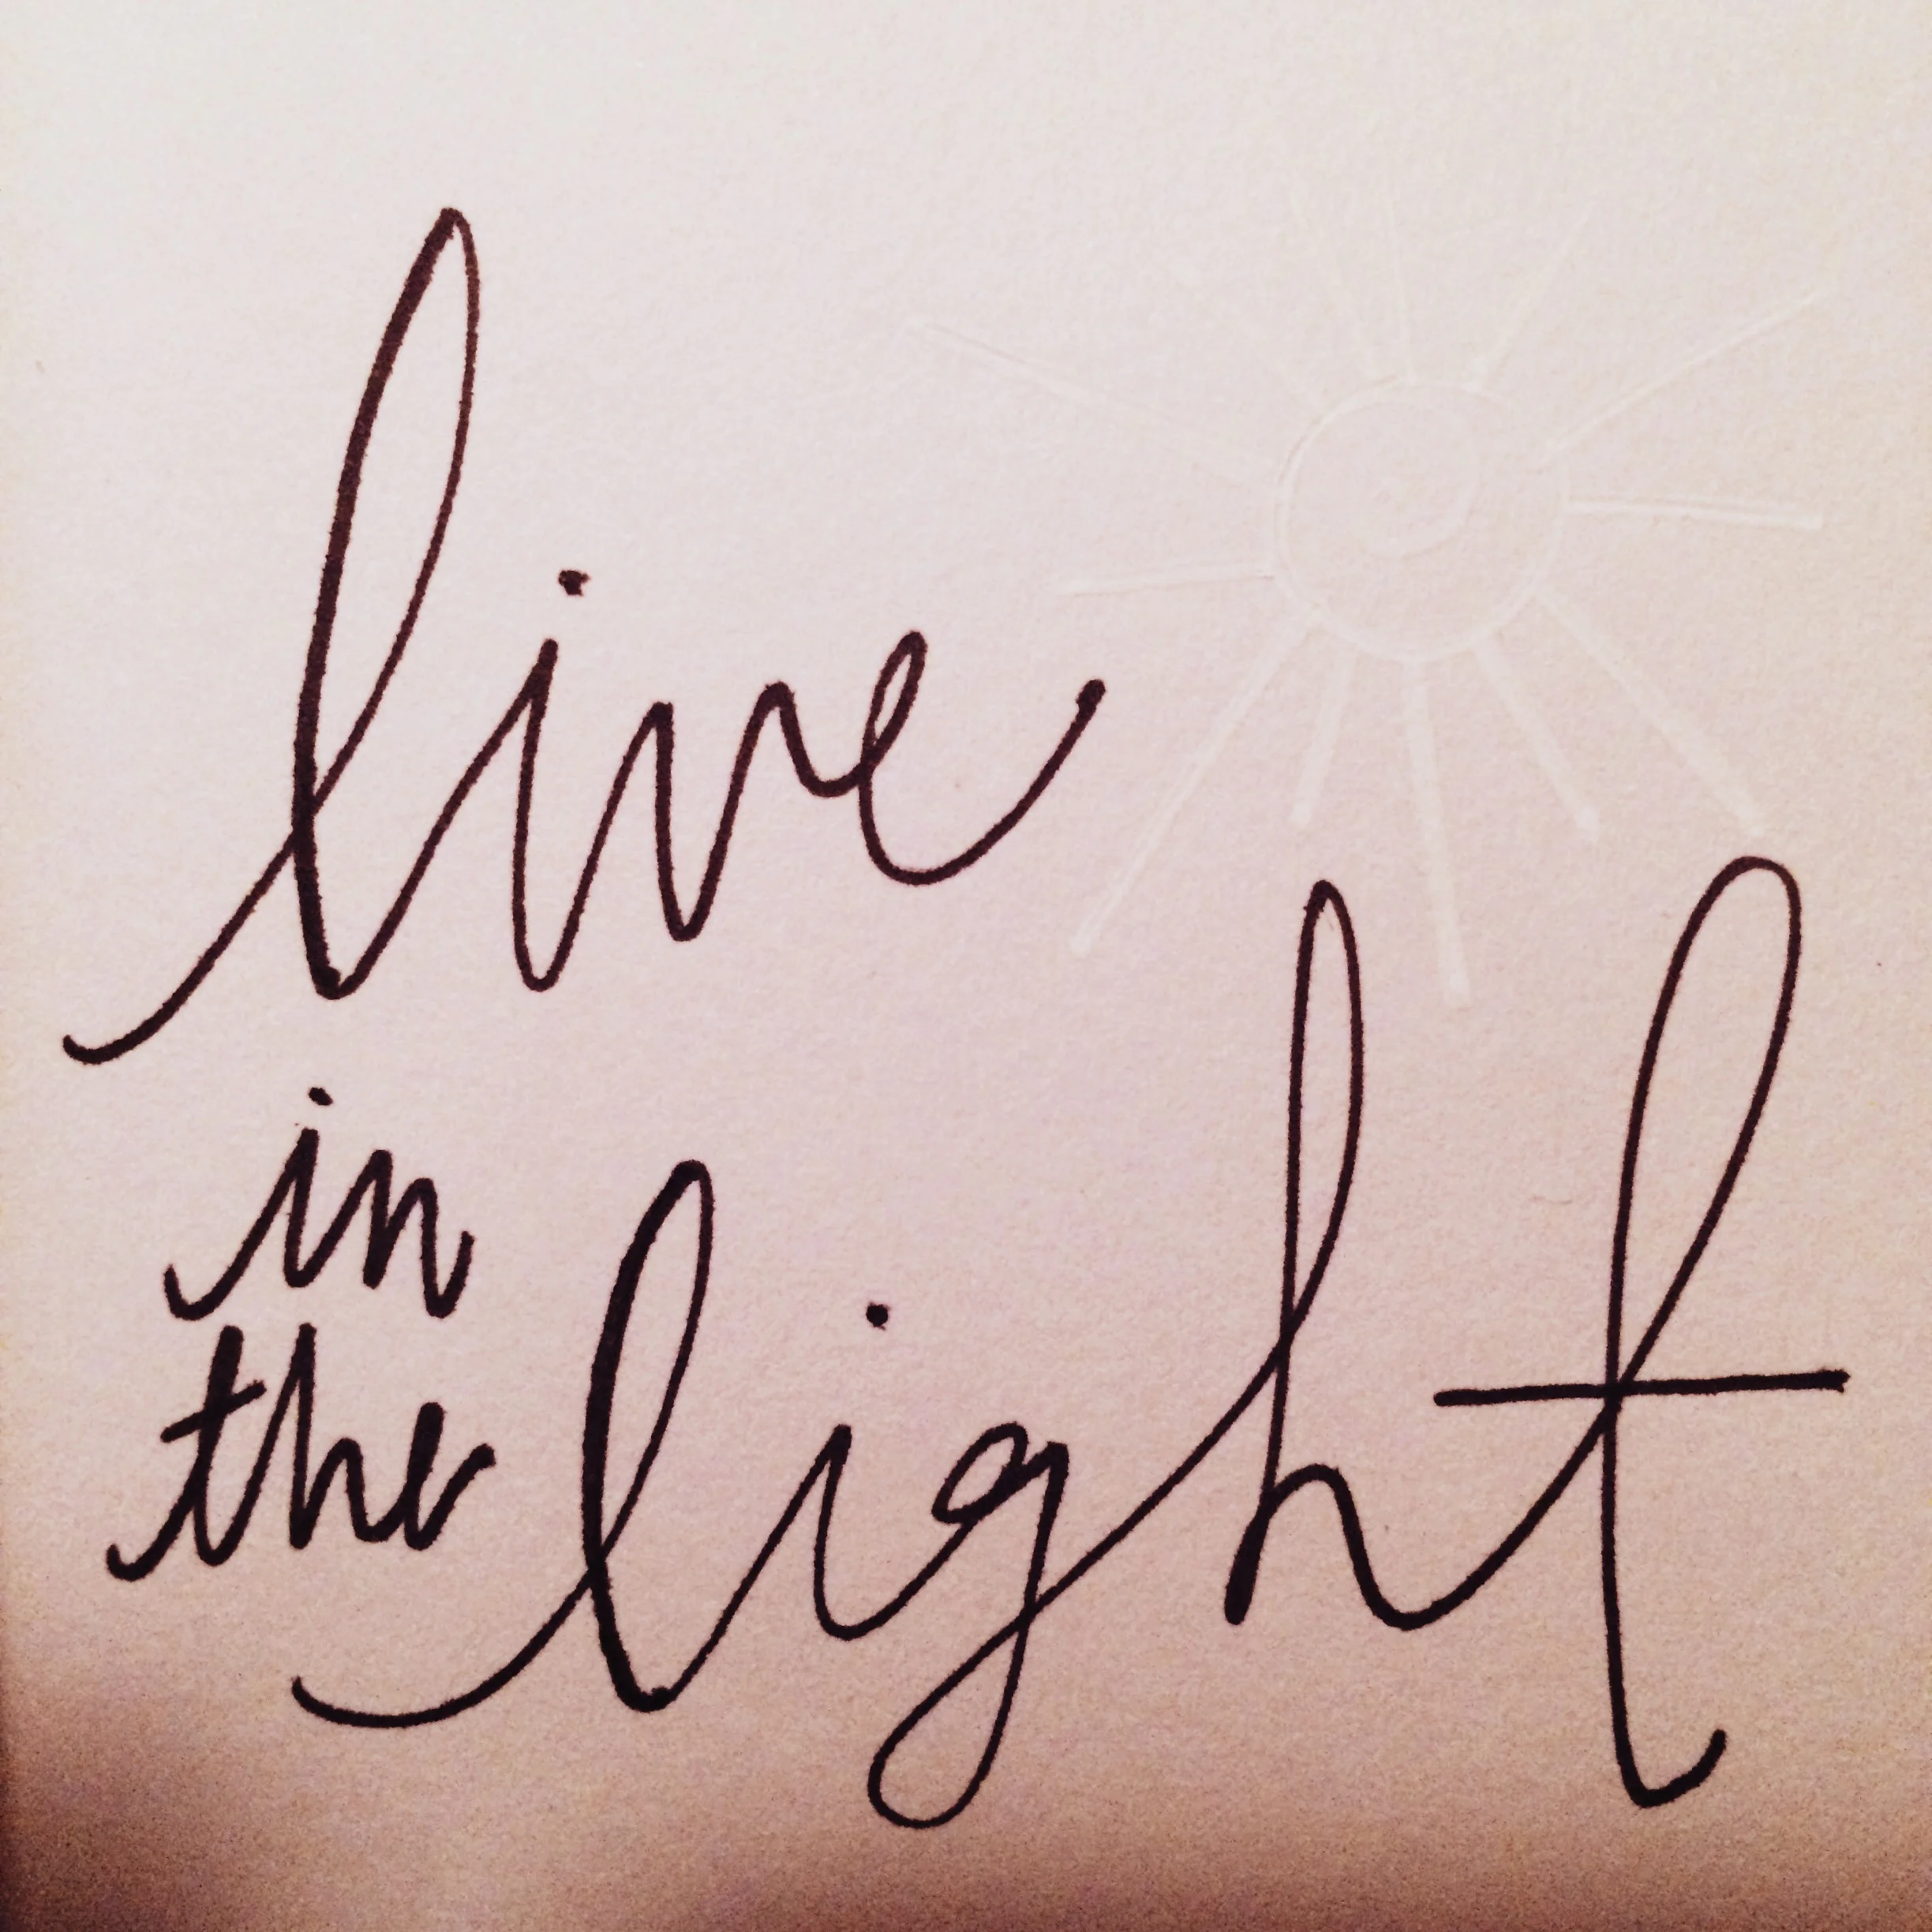 live
in
the light